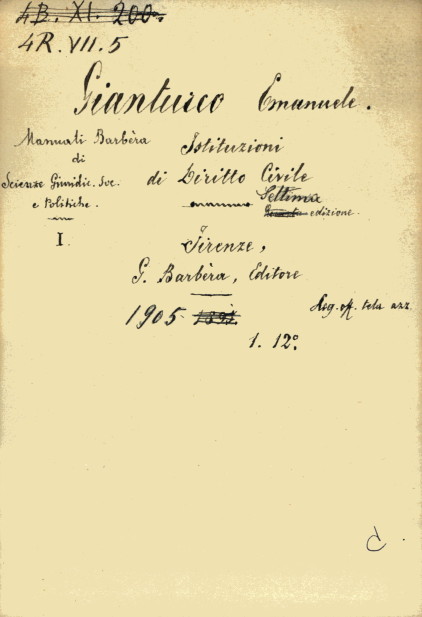 4B. XI. 200.
4R. VII. 5
Gianturco Emanuele.
Manuali Barbèra
di
Scienze Giuridic. Soc.
e Politiche.
I.
Istituzioni
di Diritto Civile
Settima
edizione.
Firenze,
G. Barbèra, Editore
1905
Leg. off. tela azz.
1. 12º
C.